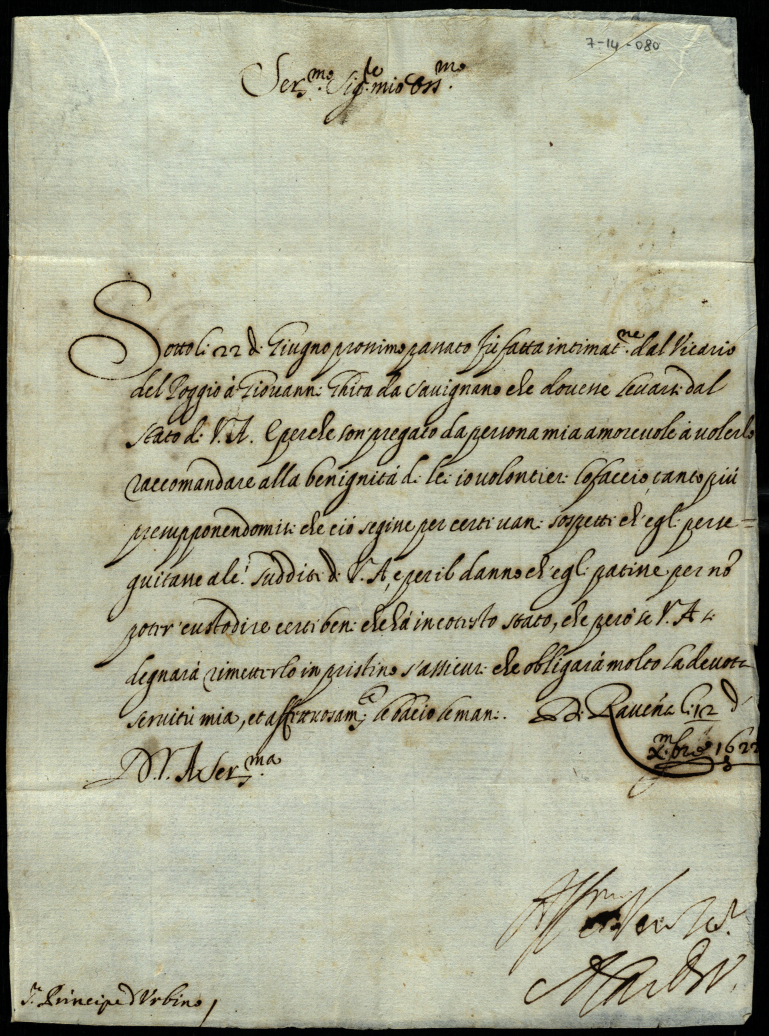 7-14-080
Ser.mo Sig.re mio Oss.mo
Sotto li 22 di Giugno prossimo passato fù fatta intimat.ne dal Vicario
del Poggio à Giovanni Ghita da Savignano che dovesse levarsi dal
stato di V. A. E perche son pregato da persona mia amorevole à volerlo
raccomandare alla benignità di lei io volontieri lo faccio, tanto più
presupponendomisi che ciò segua per certi vani sospetti ch'egli perse=
guitasse alc.i sudditi di V. A, e per il danno ch'egli patisse per nõ
poter custodire certi beni che hà in cotesto stato, che però se V. A si
degnarà rimetterlo in pristino s'assicuri che obligarà molto la devota
servitù mia, et affettuosam.te le bacio le mani. Di Raveña li 12 di
Xmbre 1622
D. V. A Ser.ma
Aff.mo Ser.re
S.r Principe d'Urbino